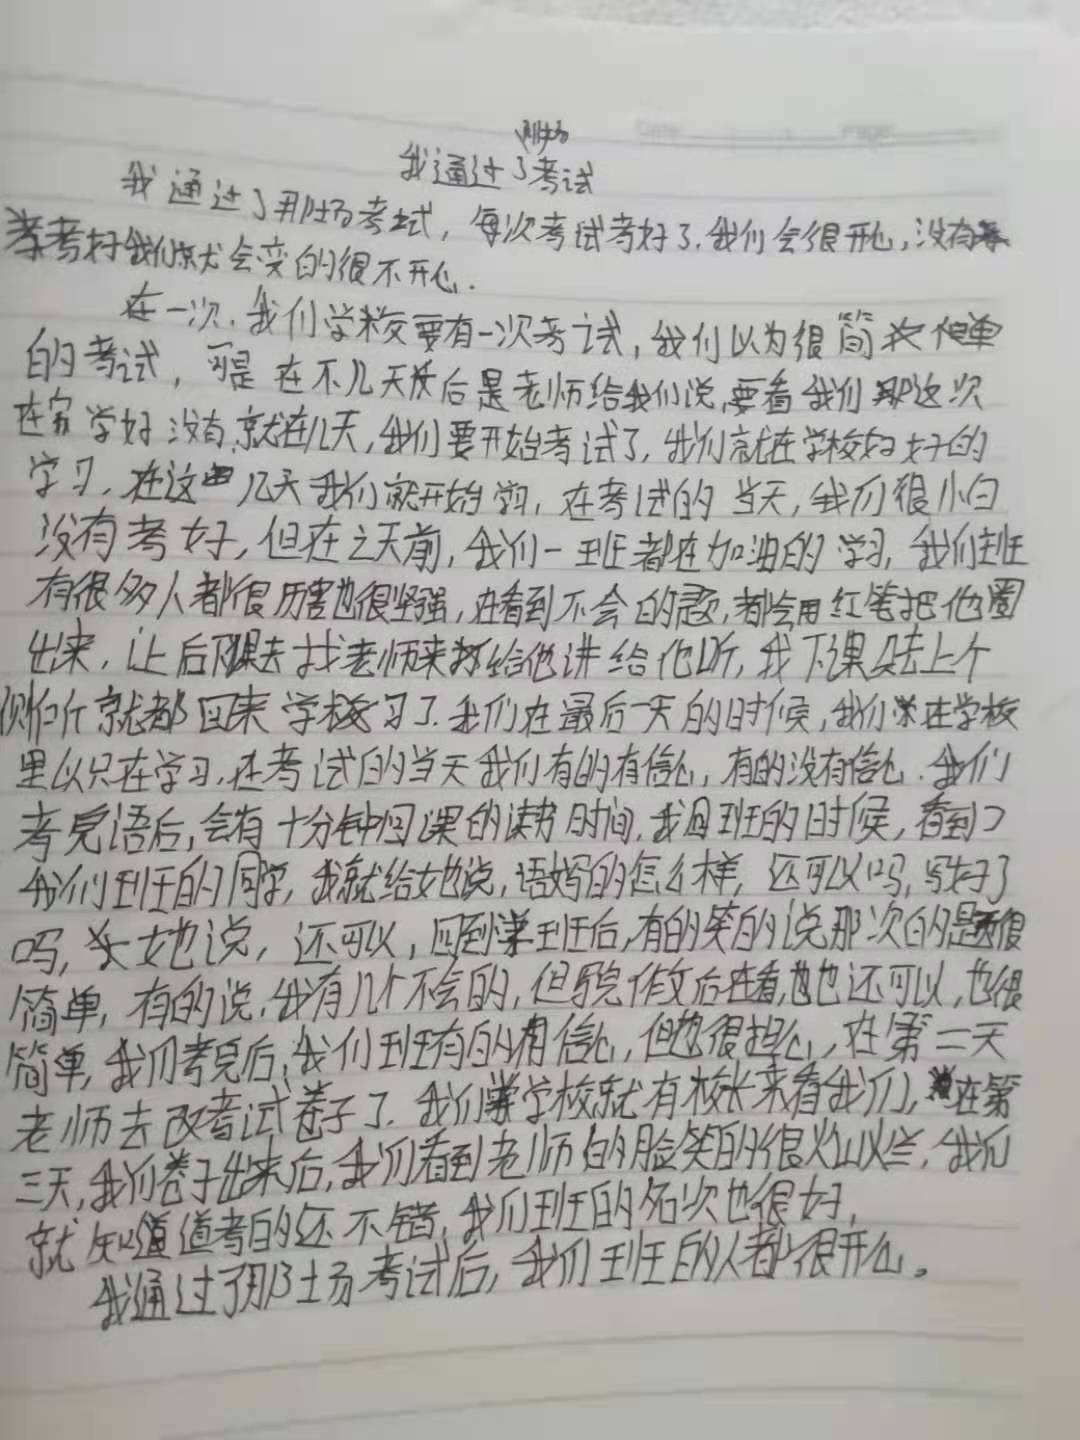 那场
我通过了考试
我通过了那场考试，每次考试考好了.我们会很开心，没有
考好我们就会变的很不开心.
在一次.我们学校要有一次考试，我们以为很简单
的考试，可是在不几天后是老师给我们说，要看我们这次
在家学好没有.就在几天，我们要开始考试了，我们就在学校好好的
学习，在这几天我们就开始学习，在考试的当天，我们很小白
没有考好，但在之天前，我们一班都在加油的学习，我们班
有很多人都很历害也很坚强，在看到不会的题，都会用红笔把他圈
出来，让后下课去找老师来给他讲给他听，我下课只去上个
侧所就都回来学校习了.我们在最后一天的时候，我们在学校
里以只在学习，在考试的当天我们有的有信心，有的没有信心.我们
考完语后，会有十分钟回课的读书时间，我回班的时候，看到
我们班的同学，我就给她说，语妈的怎么样，还可以吗，写好了
吗，她说，还可以，回到班后，有的笑的说那次的题很
简单，有的说，我有几个不会的，但完作文后在看，也还可以，也很
简单，我们考完后，我们班有的有信心，但也很担心，在第二天
老师去改考试卷子了.我们学校就有校长来看我们，在第
三天，我们卷子出来后，我们看到老师的脸笑的很火山火兰，我们
就知道道考的还不错，我们班的名次也很好，
我通过了那场考试后，我们班的人都很开心。